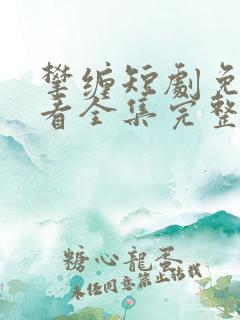 攀缠短劇免
看全集完整
糖心龍蛋
未经同意禁止转载